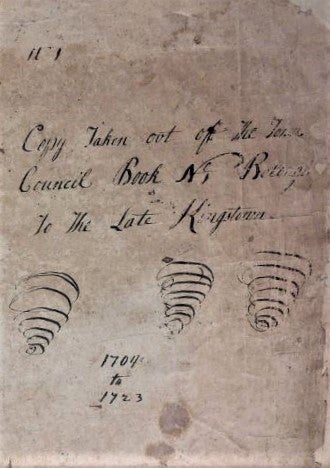 N 1
Copy Taken out off The Town
Council Book No 1
To The Late Kingstown
to
1723